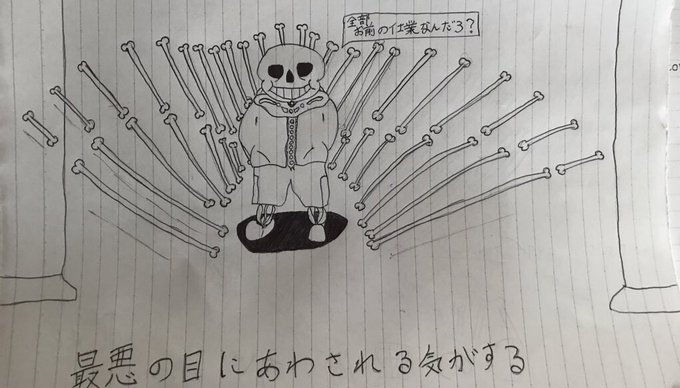 全部
お前の仕業なんだろ?
最悪の目にあわされる気がする